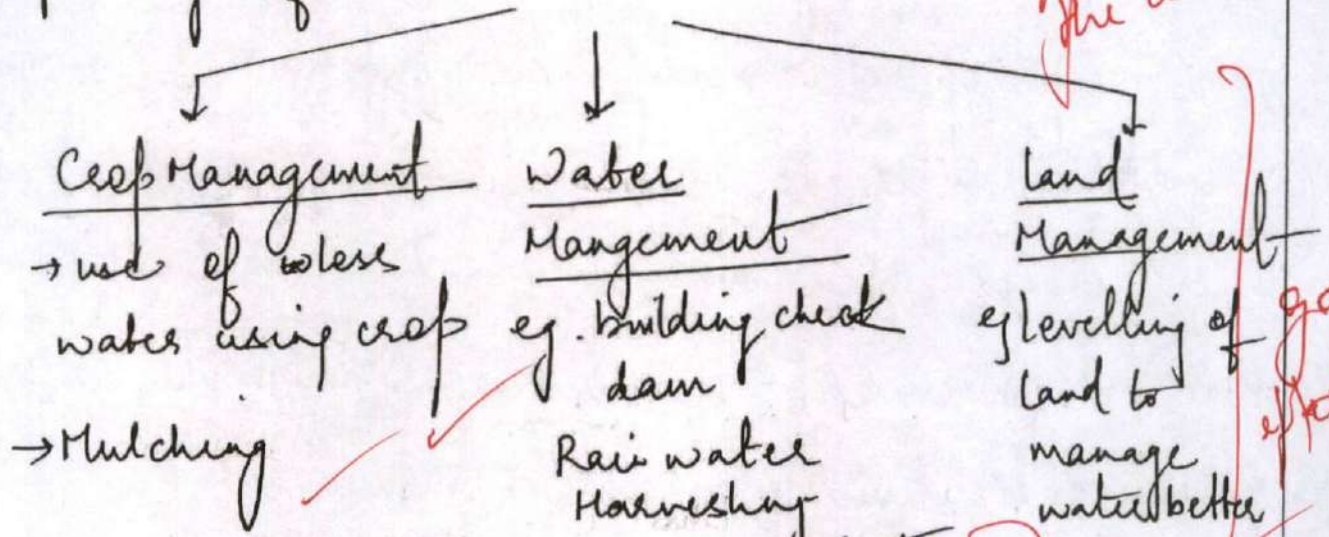 the
Crop Management
→ use of less
water using crop
→ Mulching
Water
Mangement
eg. building check
dam
Rain water
Harvesting
Land
Management
eg levelling of
land to
manage
water better